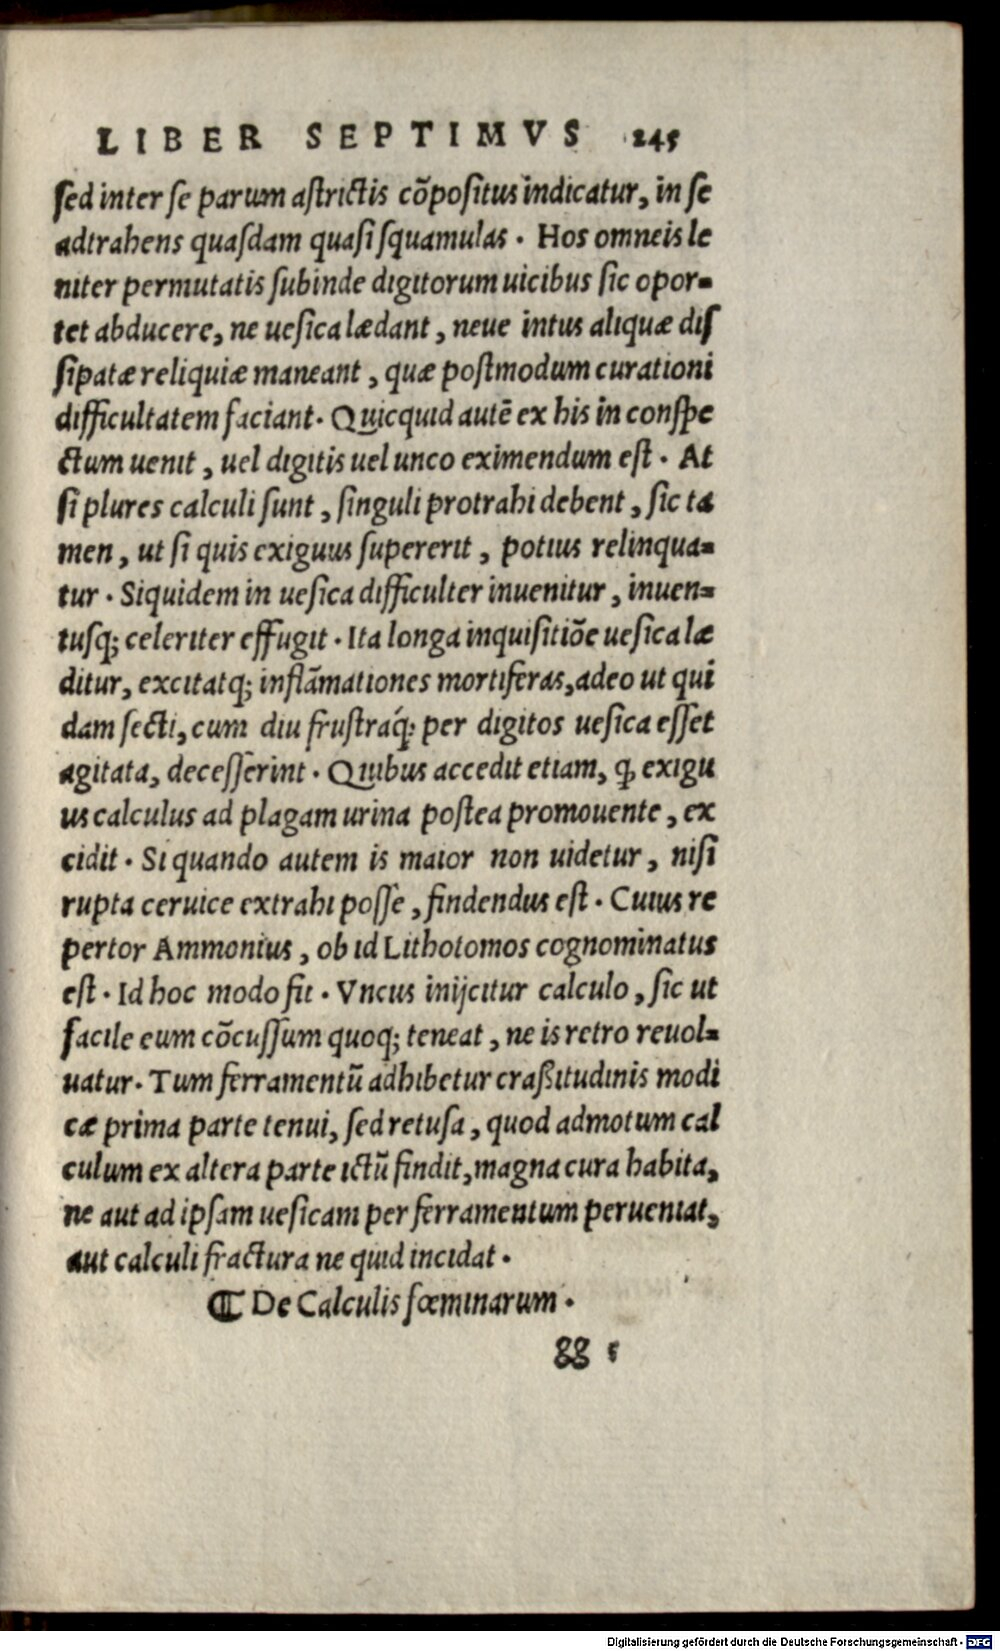 LIBER SEPTIMVS 245
sed inter se parum astrictis cōpositus indicatur, in se
adtrahens quasdam quasi squamulas. Hos omneis le
niter permutatis subinde digitorum uicibus sic opor-
tet abducere, ne uesica lædant, neue intus aliquæ dis
sipatæ reliquiæ maneant, quæ postmodum curationi
difficultatem faciant. Quicquid autē ex his in conspe
ctum uenit, uel digitis uel unco eximendum est. At
si plures calculi sunt, singuli protrahi debent, sic ta
men, ut si quis exiguus supererit, potius relinqua-
tur. Siquidem in uesica difficulter inuenitur, inuen-
tusq; celeriter effugit. Ita longa inquisitiōe uesica læ
ditur, excitatq; inflāmationes mortiferas, adeo ut qui
dam secti, cum diu frustráq; per digitos uesica esset
agitata, decesserint. Quibus accedit etiam, ꝙ exigu
us calculus ad plagam urina postea promouente, ex
cidit. Si quando autem is maior non uidetur, nisi
rupta ceruice extrahi posse, findendus est. Cuius re
pertor Ammonius, ob id Lithotomos cognominatus
est. Id hoc modo fit. Vncus inijcitur calculo, sic ut
facile eum cōcussum quoq; teneat, ne is retro reuol-
uatur. Tum ferramentū adhibetur craßitudinis modi
cæ prima parte tenui, sed retusa, quod admotum cal
culum ex altera parte ictū findit, magna cura habita,
ne aut ad ipsam uesicam per ferramentum perueniat,
aut calculi fractura ne quid incidat.
¶ De Calculis fœminarum.
gg 5
Digitalisierung gefördert durch die Deutsche Forschungsgemeinschaft - DFG